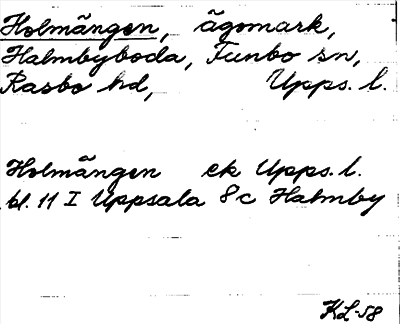 Holmängen, ägomark,
Halmbyboda, Funbo sn,
Rasbo hd, Upps. l.
Holmängen ek Upps. l.
bl. 11 I Uppsala 8c Halmby
KL-58